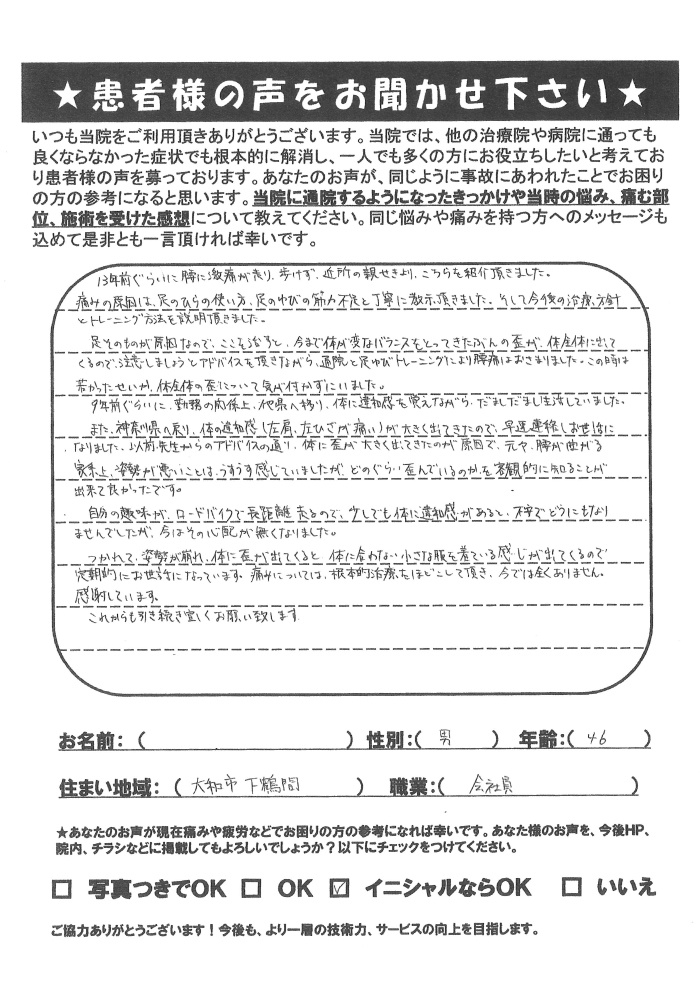 ★患者様の声をお聞かせ下さい★
いつも当院をご利用頂きありがとうございます。当院では、他の治療院や病院に通っても
良くならなかった症状でも根本的に解消し、一人でも多くの方にお役立ちしたいと考えてお
り患者様の声を募っております。あなたのお声が、同じように事故にあわれたことでお困り
の方の参考になると思います。当院に通院するようになったきっかけや当時の悩み、痛む部
位、施術を受けた感想について教えてください。同じ悩みや痛みを持つ方へのメッセージも
込めて是非とも一言頂ければ幸いです。
13年前ぐらいに腰に激痛が走り、歩けず、近所の親せきより、こちらを紹介頂きました。
痛みの原因は、足のひらの使い方、足のゆびの筋力不足と丁寧に教示頂きました。そして今後の治療方針
とトレーニング方法を説明頂きました。
足そのものが原因なので、ここを治すと、今まで体が変なバランスをとってきたぶんの歪が、体全体に出て
くるので、注意しましょうとアドバイスを頂きながら、通院と足ゆびトレーニングにより腰痛はおさまりました。この時は
若かったせいか、体全体の歪について気が付かずにいました。
9年前ぐらいに、勤務の関係上、他県へ移り、体に違和感を覚えながら、だましだまし生活していました。
また、神奈川県へ戻り、体の違和感(左肩、左ひざが痛い)が大きく出てきたので、早速連絡しお世話に
なりました。以前先生からのアドバイスの通り、体に歪が大きく出てきたのが原因で、元々、腰が曲がる
家系上、姿勢が悪いことは、うすうす感じていましたが、どのぐらい歪んでいるのかを客観的に知ることが
出来て良かったです。
自分の趣味が、ロードバイクで長距離走るので、少しでも体に違和感があると、不安でどうにもなり
ませんでしたが、今はその心配が無くなりました。
つかれて、姿勢が崩れ、体に歪が出てくると、体に合わない小さな服を着ている感じが出てくるので
定期的にお世話になっています。痛みについては、根本的治療をほどこして頂き、今では全くありません。
感謝しています。
これからも引き続き宜しくお願い致します
お名前：（ ） 性別：（ 男 ） 年齢：（ 46 ）
住まい地域：（ 大和市下鶴間 ） 職業：（ 会社員 ）
★あなたのお声が現在痛みや疲労などでお困りの方の参考になれば幸いです。あなた様のお声を、今後HP、
院内、チラシなどに掲載してもよろしいでしょうか？以下にチェックをつけてください。
□ 写真つきでOK □ OK ☑ イニシャルならOK □ いいえ
ご協力ありがとうございます！今後も、より一層の技術力、サービスの向上を目指します。